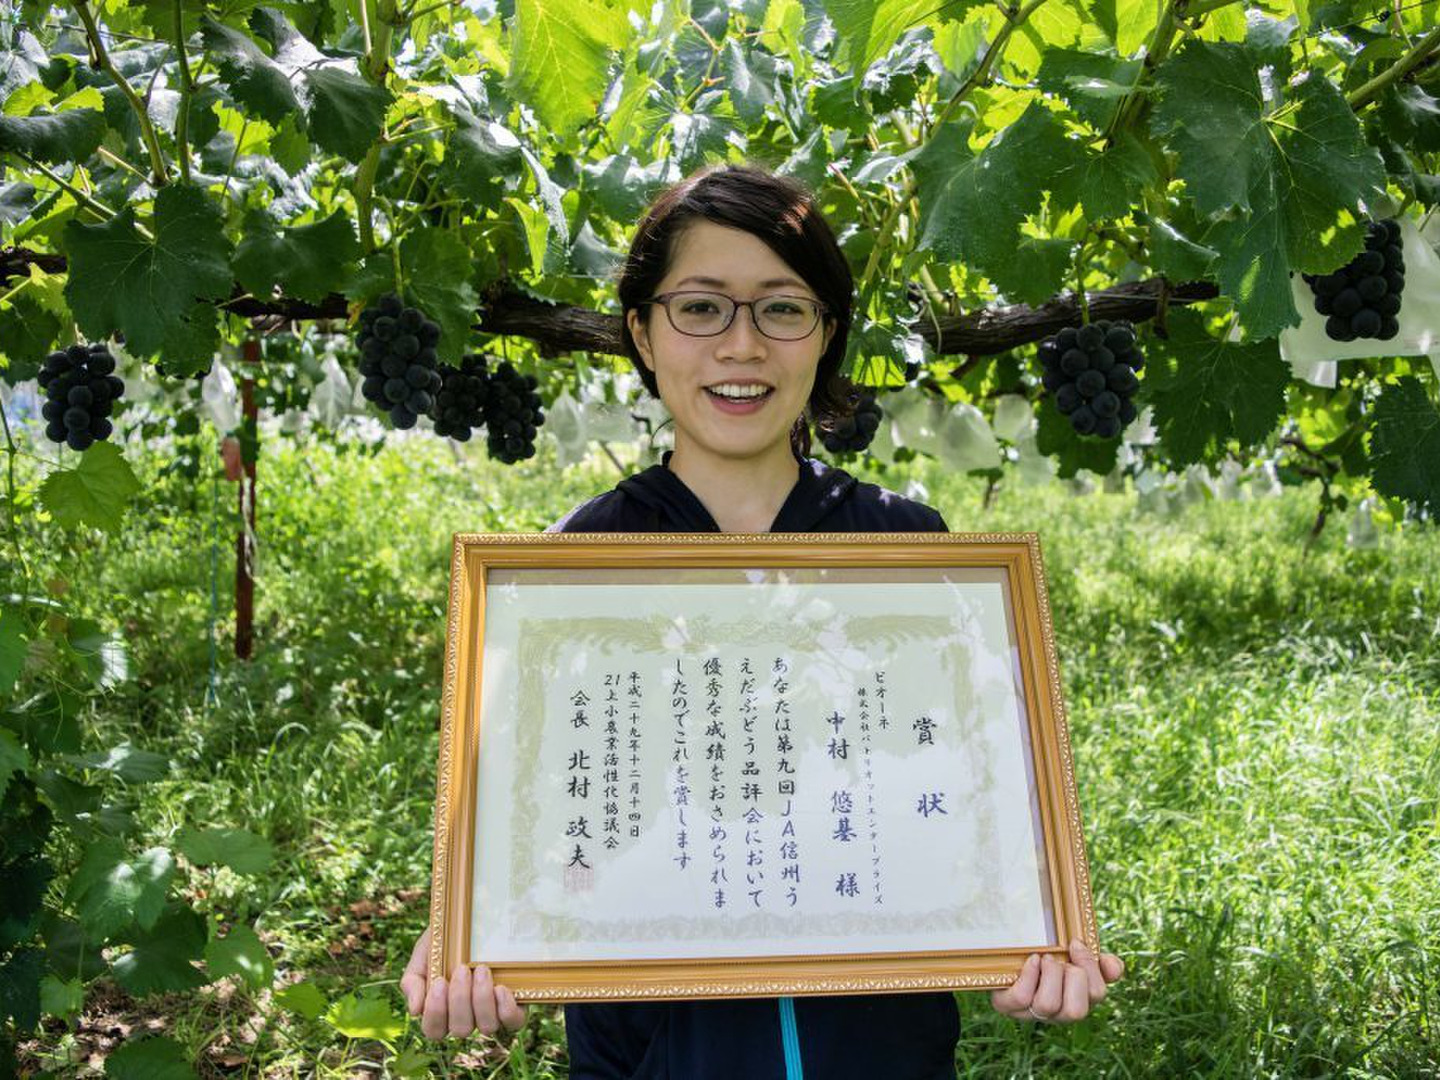 賞状
ピオーネ
株式会社パトリオットエンタープライズ
中村 悠基 様
あなたは第九回JA信州う
えだぶどう品評会において
優秀な成績をおさめられま
したのでこれを賞します
平成二十九年十二月十四日
21上小農業活性化協議会
会長 北村 政夫